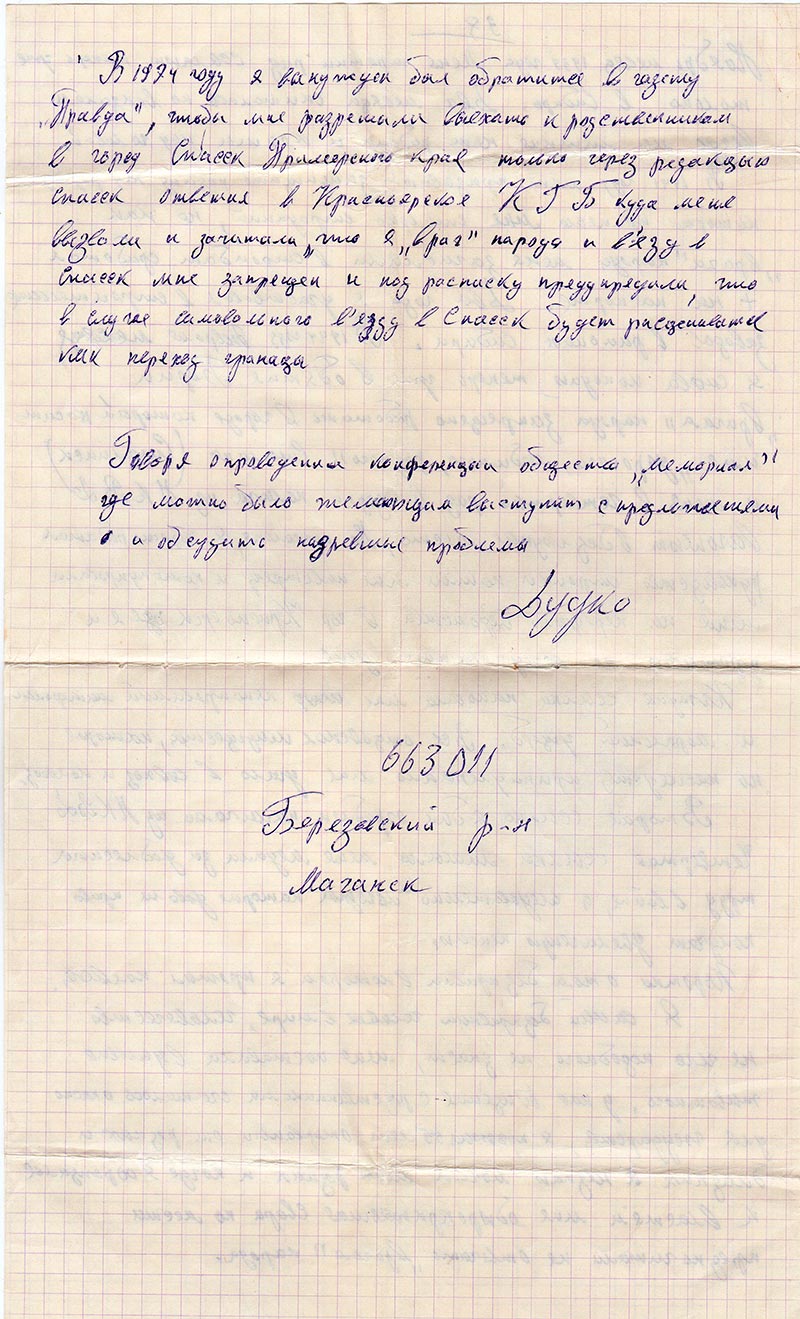 В 1974 году я вынужден был обратится в газету
„Правда", чтобы мне разрешили выехать к родственникам
в город Спасск Приморского края только через редакцыю
Спасск ответил в Красноярское КГБ куда меня
вызвали и зачитали, что я „враг" народа и в'езд в
Спасск мне запрещен и под расписку предупредили, что
в случае самовольного в'езду в Спасск будет расцениватся
как переход границы
Говоря о проведении конференции общества „Мемориал"
где можно было желающим выступит с предложениями
и обсудить надревшие проблемы
Дудко
663011
Березовский р-н
Маганск